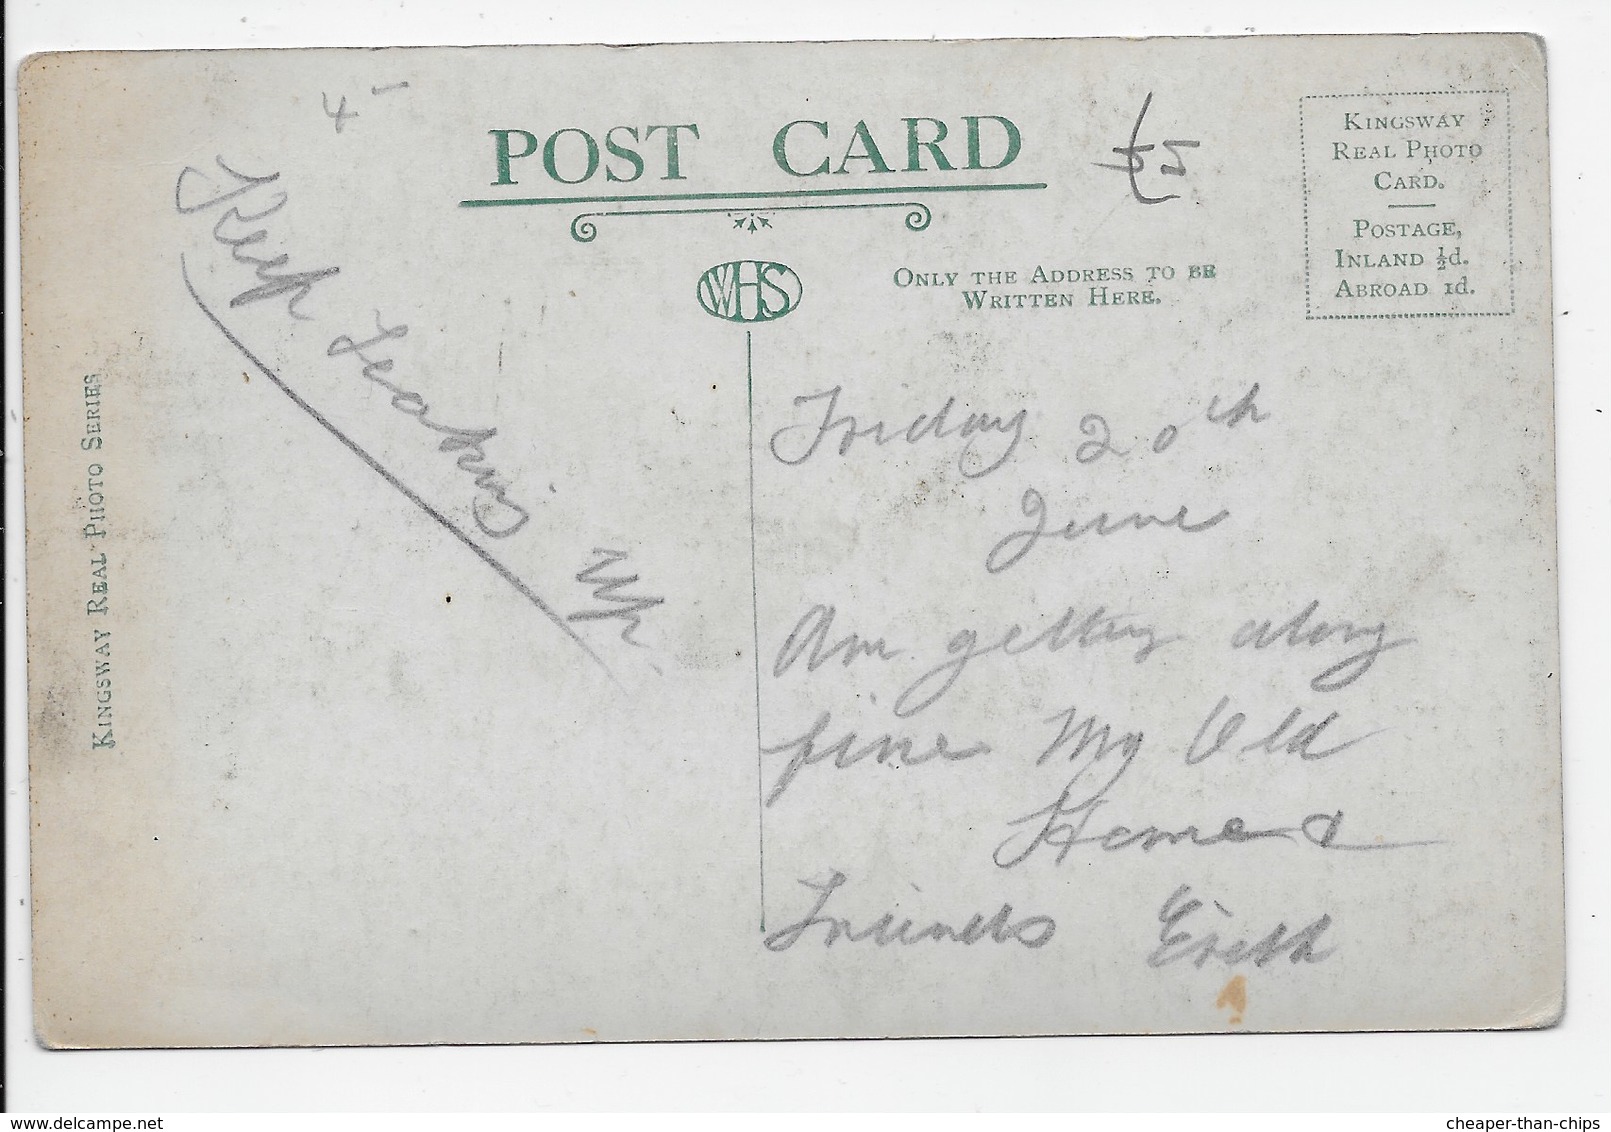 4 -
POST CARD
£5
KINGSWAY
REAL PHOTO
CARD.
POSTAGE,
INLAND ½d.
ABROAD 1d.
WHS
ONLY THE ADDRESS TO BE
WRITTEN HERE.
KINGSWAY REAL PHOTO SERIES
Keep
up
Friday 20th
June
Am getting along
fine My Old
Home &
Friends
cheaper-than-chips